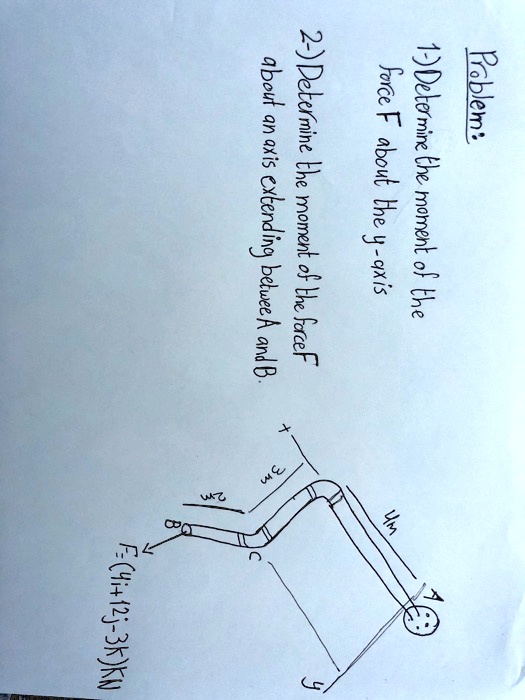 Problem:
1-) Determine the moment of the
force F about the y-axis
2-) Determine the moment of the force F
about an axis extending betwee A and B.
A
4m
x
3m
y
C
2m
B
F=(4i+12j-3k)KN